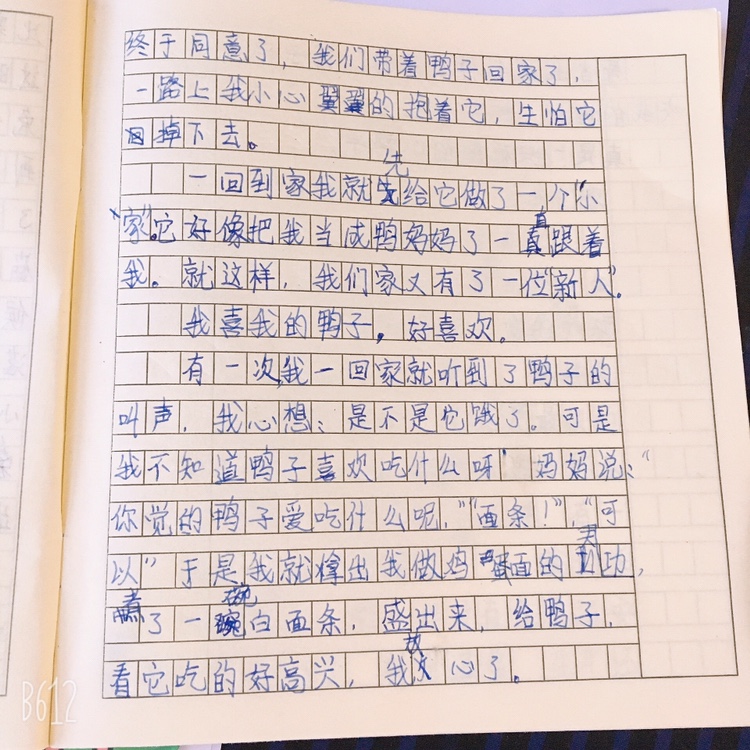 终于同意了，我们带着鸭子回家了，
一路上我小心翼翼的抱着它，生怕它
掉下去。
一回到家我就先给它做了一个“小
家”。它好像把我当成鸭妈妈了一直跟着
我。就这样，我们家又有了一位“新人”。
我喜我的鸭子，好喜欢。
有一次，我一回家就听到了鸭子的
叫声，我心想：是不是它饿了。可是
我不知道鸭子喜欢吃什么呀 妈妈说：“
你觉的鸭子爱吃什么呢，”“面条！”，“可
以”于是，我就拿出我做鸡蛋面的功，
煮了一碗白面条，盛出来，给鸭子，
看它吃的好高兴，我放心了。
B612